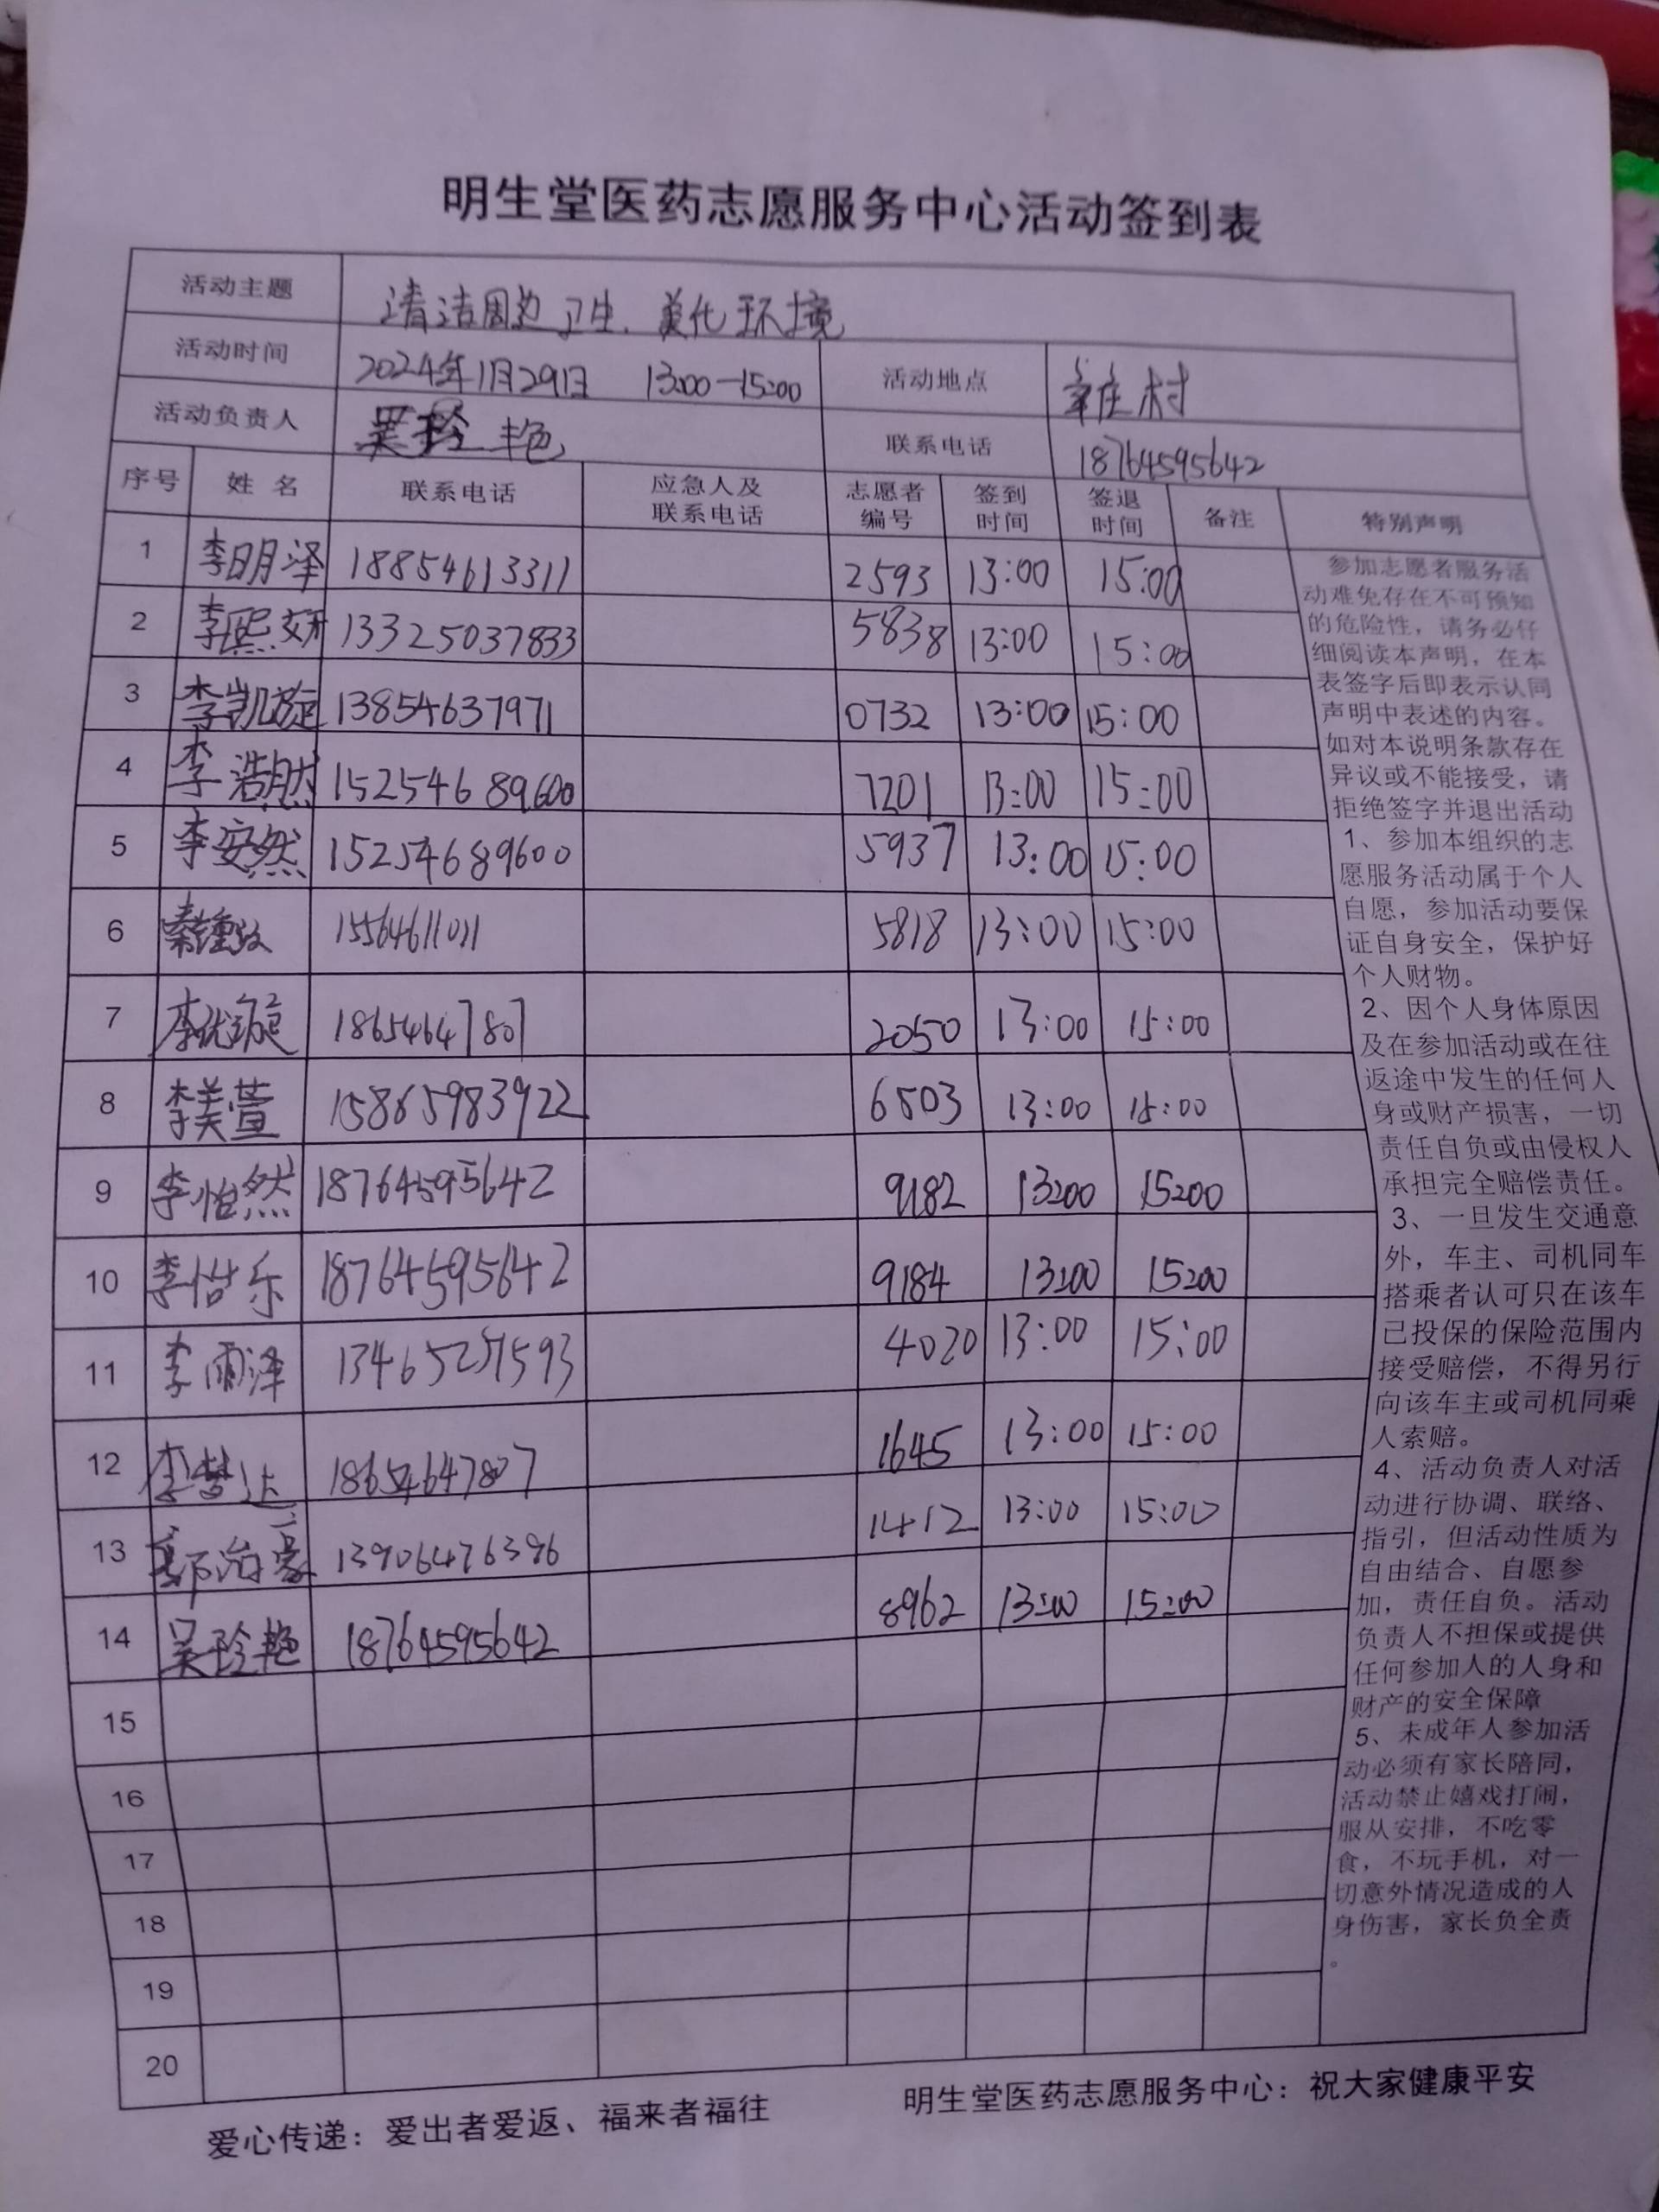 明生堂医药志愿服务中心活动签到表
活动主题 清洁周边卫生、美化环境
活动时间 2024年1月29日 13:00-15:00 活动地点 村
活动负责人 吴玲艳 联系电话 18764595642
序号 姓名 联系电话 应急人及联系电话 志愿者编号 签到时间 签退时间 备注 特别声明
1 李明泽 18854613311 2593 13:00 15:00
2 李熙妍 13325037833 5838 13:00 15:00
3 李凯旋 13854637971 0732 13:00 15:00
4 李浩然 15254689600 7201 13:00 15:00
5 李安然 15254689600 5937 13:00 15:00
6 秦 15564611011 5818 13:00 15:00
7 李优璇 18654647807 2050 13:00 15:00
8 李美萱 15865983922 6503 13:00 15:00
9 李怡然 18764595642 9182 13:00 15:00
10 李怡乐 18764595642 9184 13:00 15:00
11 李雨泽 13465275593 4020 13:00 15:00
12 李梦达 18654647807 1645 13:00 15:00
13 郭治豪 13906476396 1412 13:00 15:00
14 吴玲艳 18764595642 8962 13:00 15:00
15
16
17
18
19
20
参加志愿者服务活
动难免存在不可预知
的危险性，请务必仔
细阅读本声明，在本
表签字后即表示认同
声明中表述的内容。
如对本说明条款存在
异议或不能接受，请
拒绝签字并退出活动
1、参加本组织的志
愿服务活动属于个人
自愿，参加活动要保
证自身安全，保护好
个人财物。
2、因个人身体原因
及在参加活动或在往
返途中发生的任何人
身或财产损害，一切
责任自负或由侵权人
承担完全赔偿责任。
3、一旦发生交通意
外，车主、司机同车
搭乘者认可只在该车
已投保的保险范围内
接受赔偿，不得另行
向该车主或司机同乘
人索赔。
4、活动负责人对活
动进行协调、联络、
指引，但活动性质为
自由结合、自愿参
加，责任自负。活动
负责人不担保或提供
任何参加人的人身和
财产的安全保障
5、未成年人参加活
动必须有家长陪同，
活动禁止嬉戏打闹，
服从安排，不吃零
食，不玩手机，对一
切意外情况造成的人
身伤害，家长负全责
。
爱心传递：爱出者爱返、福来者福往 明生堂医药志愿服务中心：祝大家健康平安